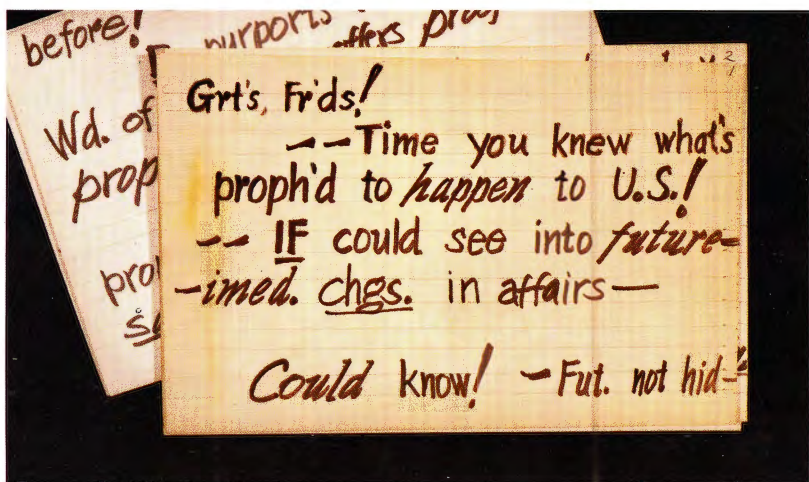 before!
purports
offers proof
Wd. of
prop
pro
2
Grt's, Fr'ds!
--Time you knew what's
proph'd to happen to U.S.!
-- IF could see into future-
-imed. chgs. in affairs—
Could know! -Fut. not hid-